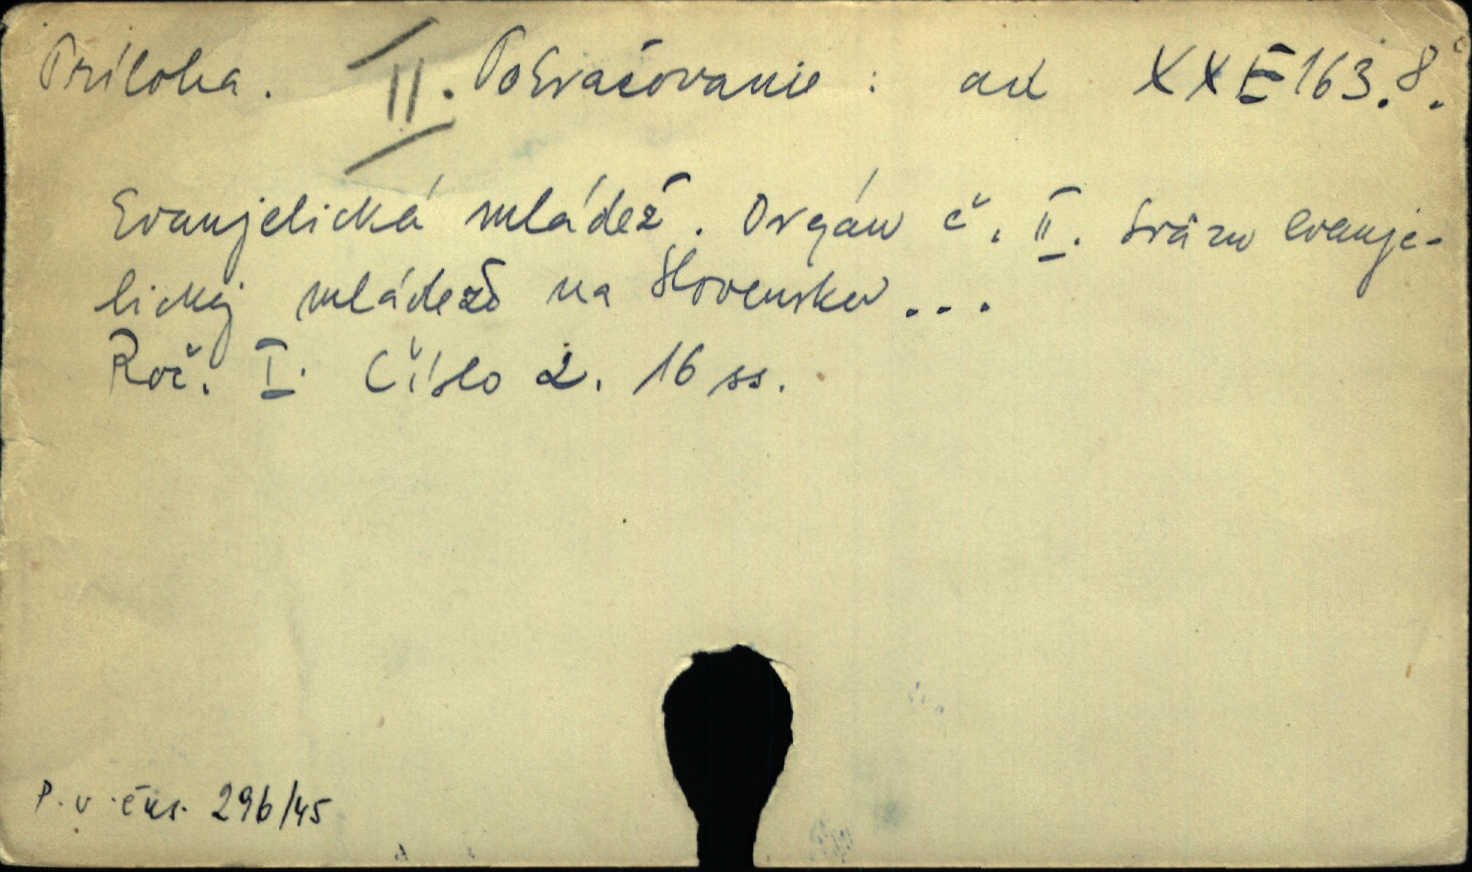 Príloha. II. Pokračovanie : ad XX E 163.8°.
Evanjelická mládež. Orgán č. II. Sväzu evanje-
lickej mládeže na Slovensku...
Roč. I. Číslo 2. 16 ss.
P. v čes. 296/45